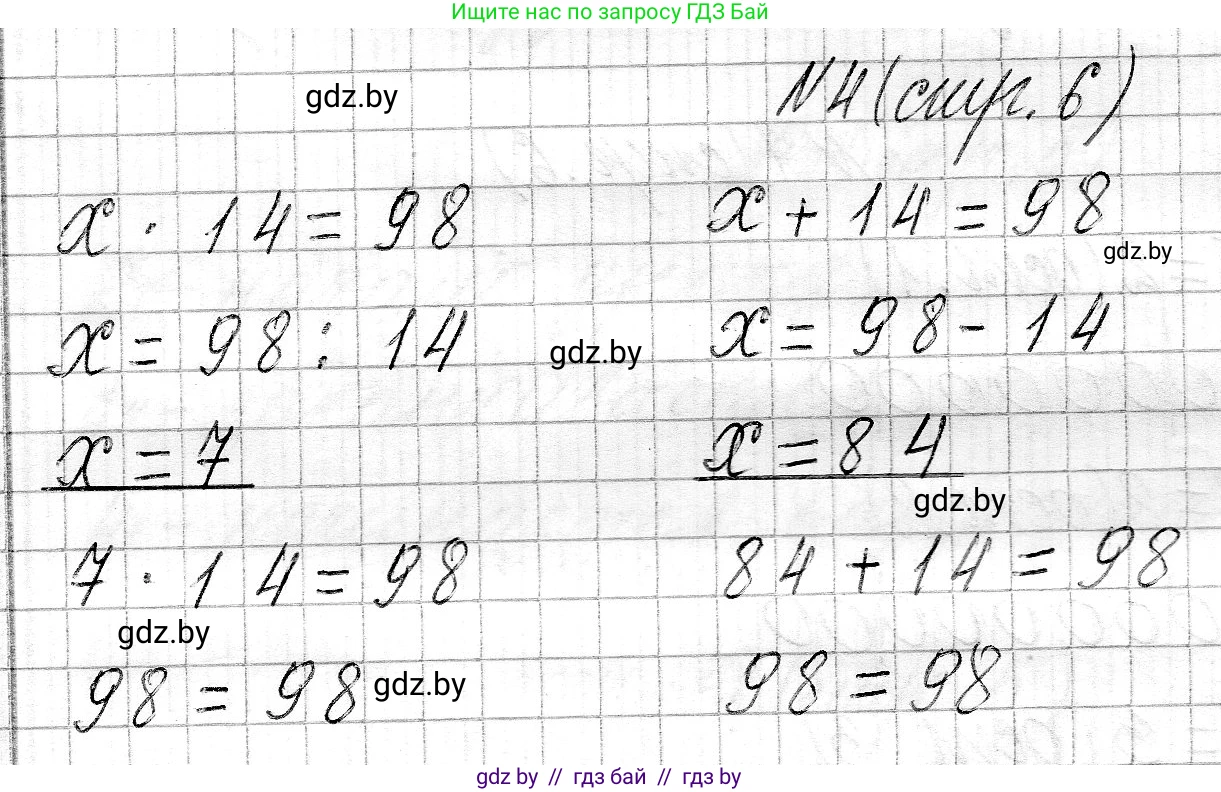 Ищите нас по запросу ГДЗ Бай
gdz.by
N4 (стр. 6)
x · 14 = 98
x + 14 = 98
gdz.by
x = 98 : 14
gdz.by
x = 98 - 14
x = 7
x = 84
gdz.by
7 · 14 = 98
84 + 14 = 98
gdz.by
98 = 98
gdz.by
98 = 98
gdz.by // гдз бай // гдз by